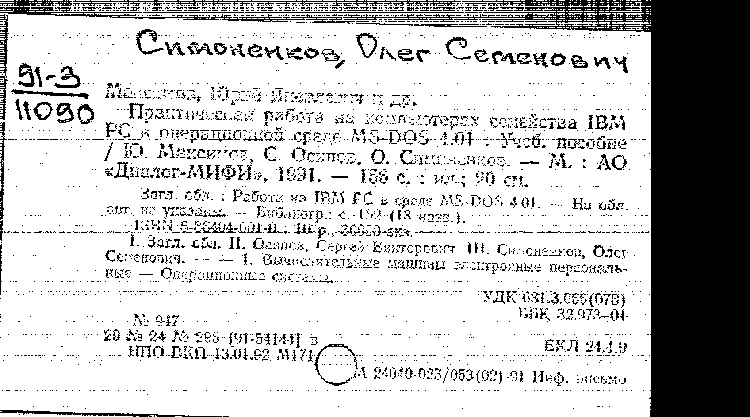 Симоненков, Олег Семенович
91-3
11090
Максимов, Юрий и др.
Практическая работа на компьютерах семейства IBM
PC в операционной среде MS-DOS 4.01 : Учеб. пособие
/ Ю. Максимов, С. Осипов, О. Симоненков. — М. : АО
«Диалог-МИФИ», 1991. — 156 с. : ил.; 20 см.
Загл. обл. : Работа на IBM PC в среде MS-DOS 4.01. — На обл.
авт. не указаны. — Библиогр.: с. (18 назв.).
I. Загл. обл. II. Осипов, Сергей Викторович III. Симоненков, Олег
Семенович. — — 1. Вычислительные машины электронные персональ-
ные — Операционные системы.
УДК 681.3.066(075)
ББК 32.973-04
№ 947
20 № 24 № 295 [91-54144] в
НПО ВКП 13.01.92 М171
ЕКЛ 24.4.9
24040-023/053(02)-91 Инф. письмо